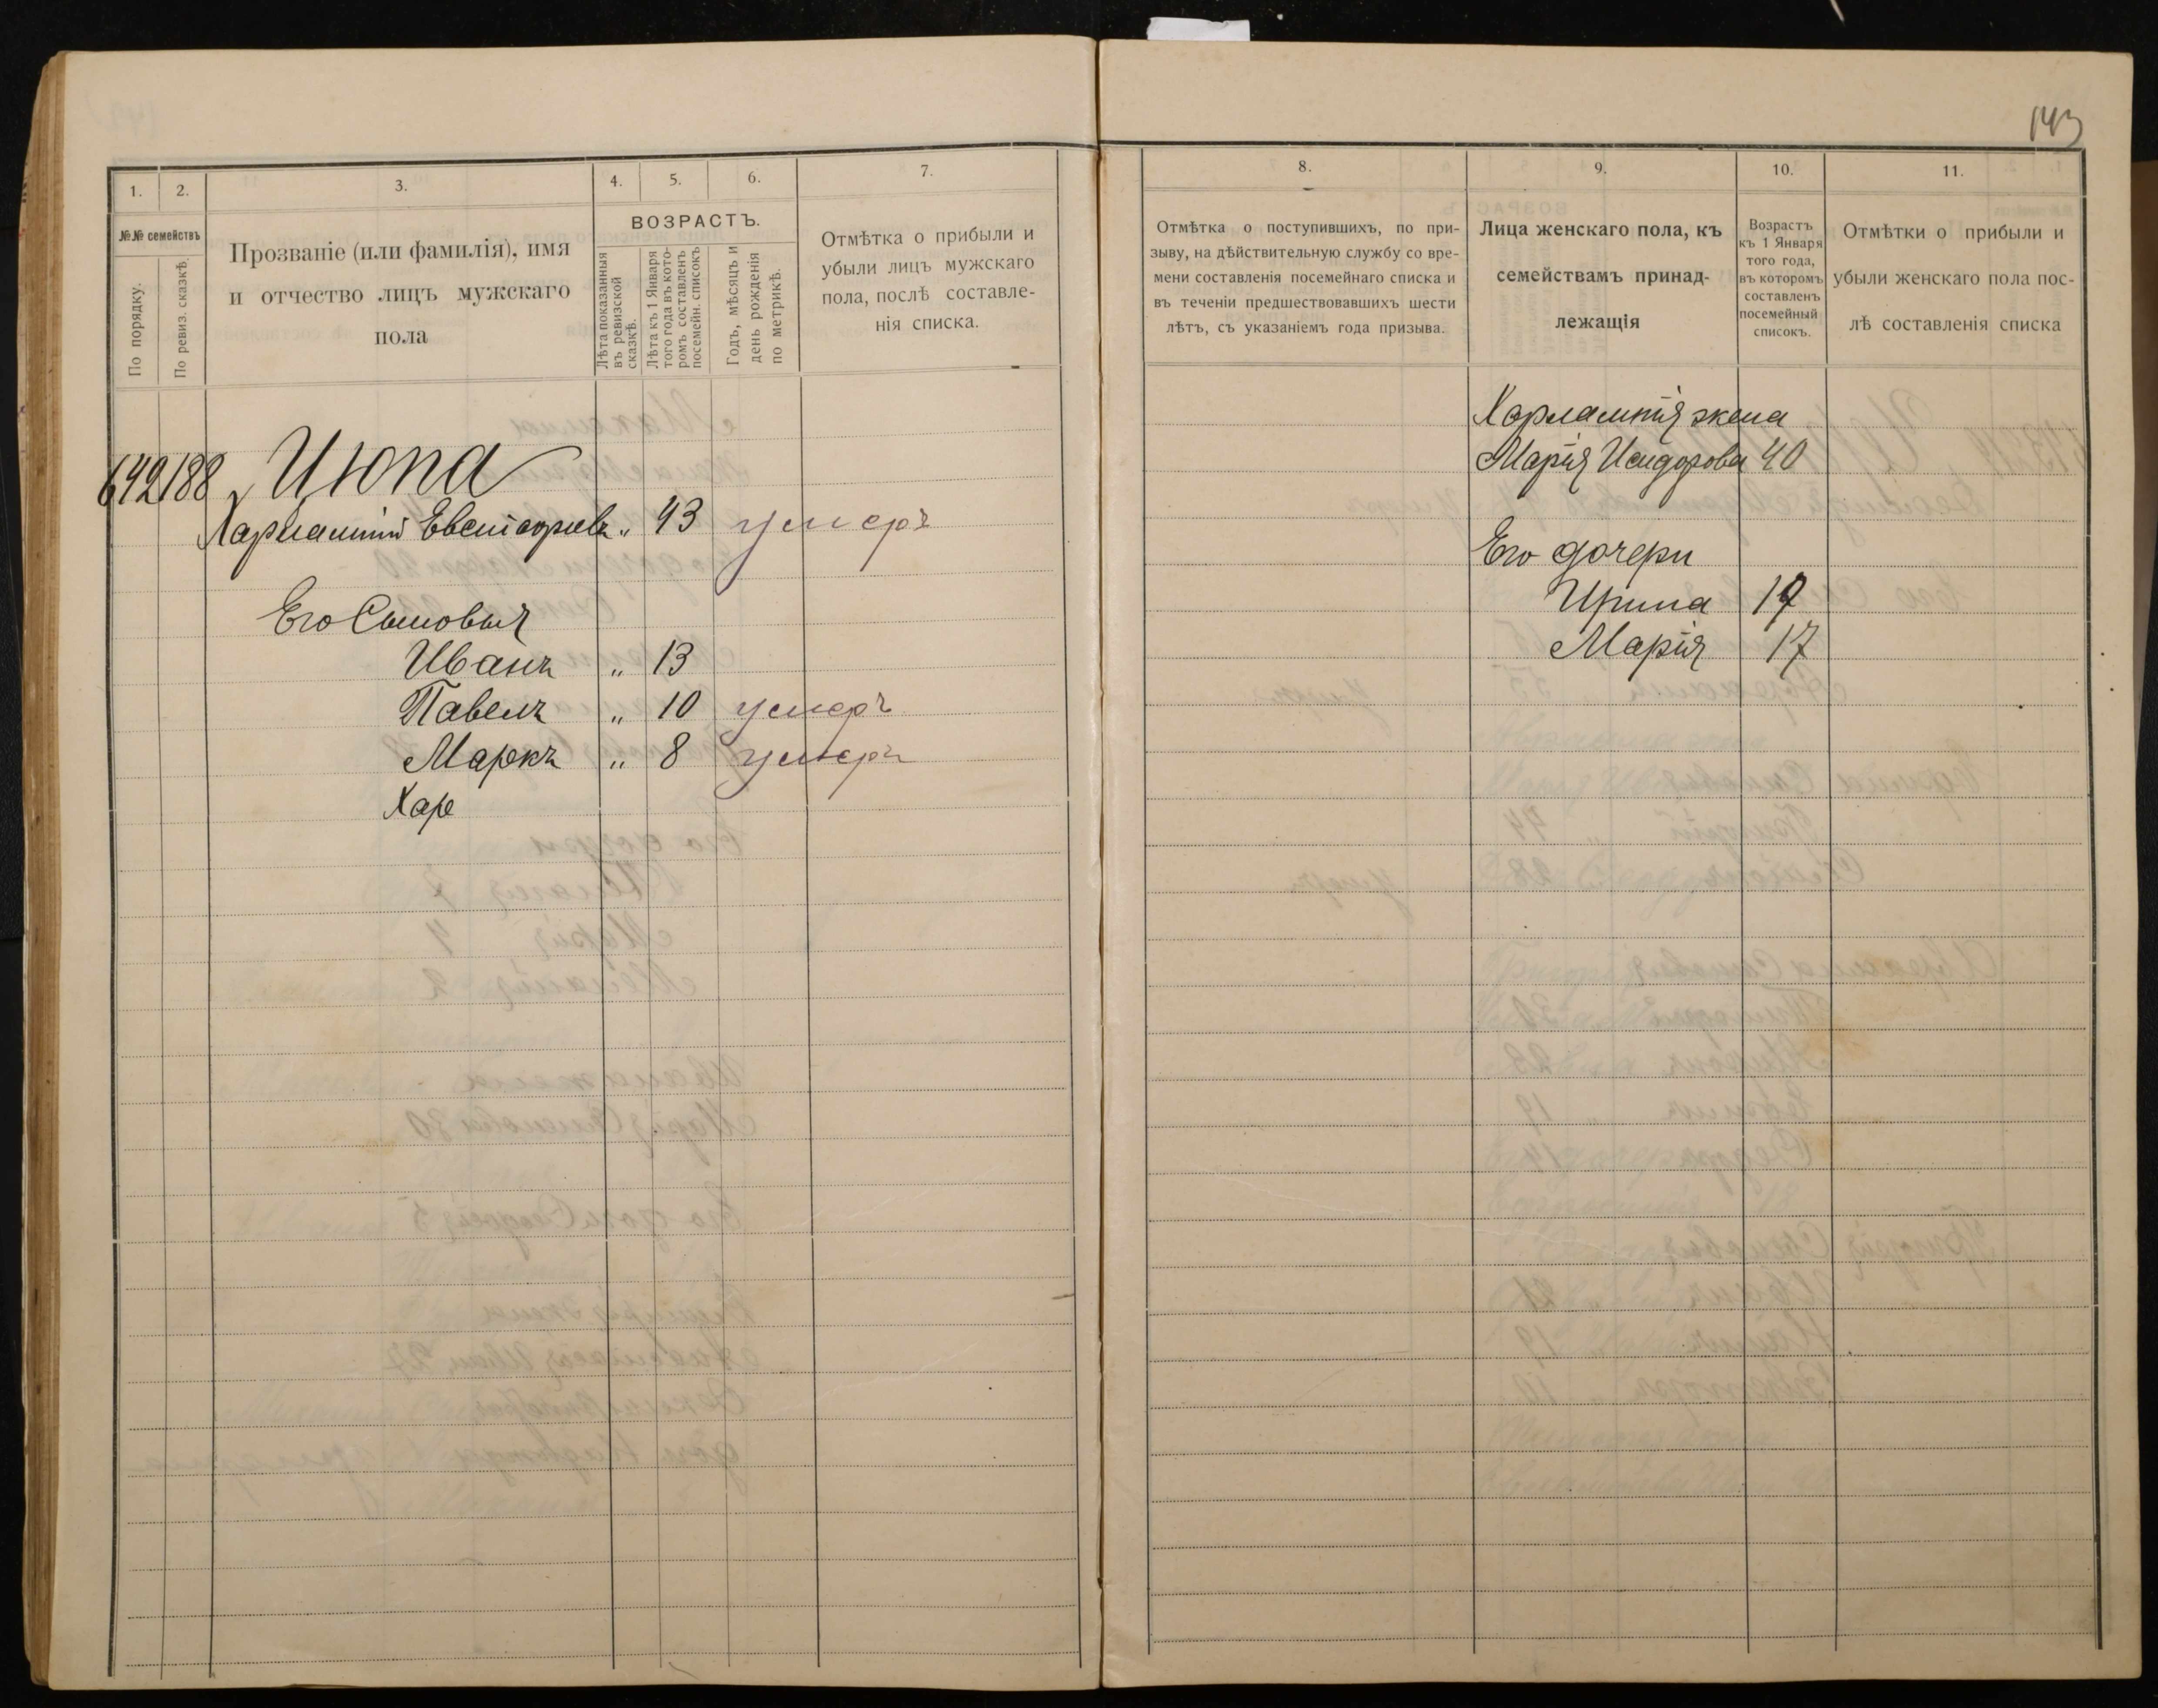 143
1.
2.
3.
4.
5.
6.
7.
№№ семействъ
По порядку.
По ревиз. сказкѣ.
Прозваніе (или фамилія), имя
и отчество лицъ мужскаго
пола
ВОЗРАСТЪ.
Лѣта показанныя
въ ревизской
сказкѣ.
Лѣта къ 1 Января
того года въ кото-
ромъ составленъ
посемейн. списокъ
Годъ, мѣсяцъ и
день рожденія
по метрикѣ.
Отмѣтка о прибыли и
убыли лицъ мужскаго
пола, послѣ составле-
нія списка.
642 188 Цюпа
Харлампій Евстафіевъ „ 43 умеръ
Его Сыновья
Иванъ „ 13
Павелъ „ 10 умеръ
Маркъ „ 8 умеръ
Хар
8.
9.
10.
11.
Отмѣтка о поступившихъ, по при-
зыву, на дѣйствительную службу со вре-
мени составленія посемейнаго списка и
въ теченіи предшествовавшихъ шести
лѣтъ, съ указаніемъ года призыва.
Лица женскаго пола, къ
семействамъ принад-
лежащія
Возрастъ
къ 1 Января
того года,
въ которомъ
составленъ
посемейный
списокъ.
Отмѣтки о прибыли и
убыли женскаго пола пос-
лѣ составленія списка
Харлампія жена
Марія Исидорова 40
Его дочери
Ирина 19
Марія 17